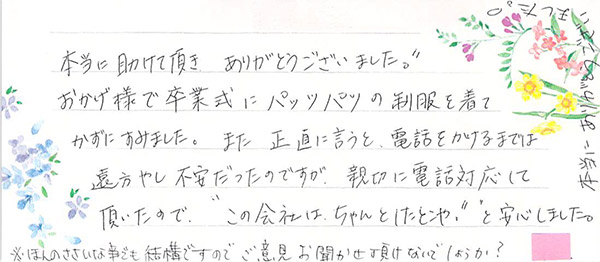 本当に助けて頂き ありがとうございました。"
おかげ様で卒業式にパッツパツの制服を着て
かずにすみました。また 正直に言うと、電話をかけるまでは
遠方やし 不安だったのですが、親切に電話対応して
頂いたので、"この会社は、ちゃんとしたとこや。"と安心しました。
※ほんのささいな事でも結構ですのでご意見お聞かせ頂けないでしょうか？
本当にありがとうござい
ました。